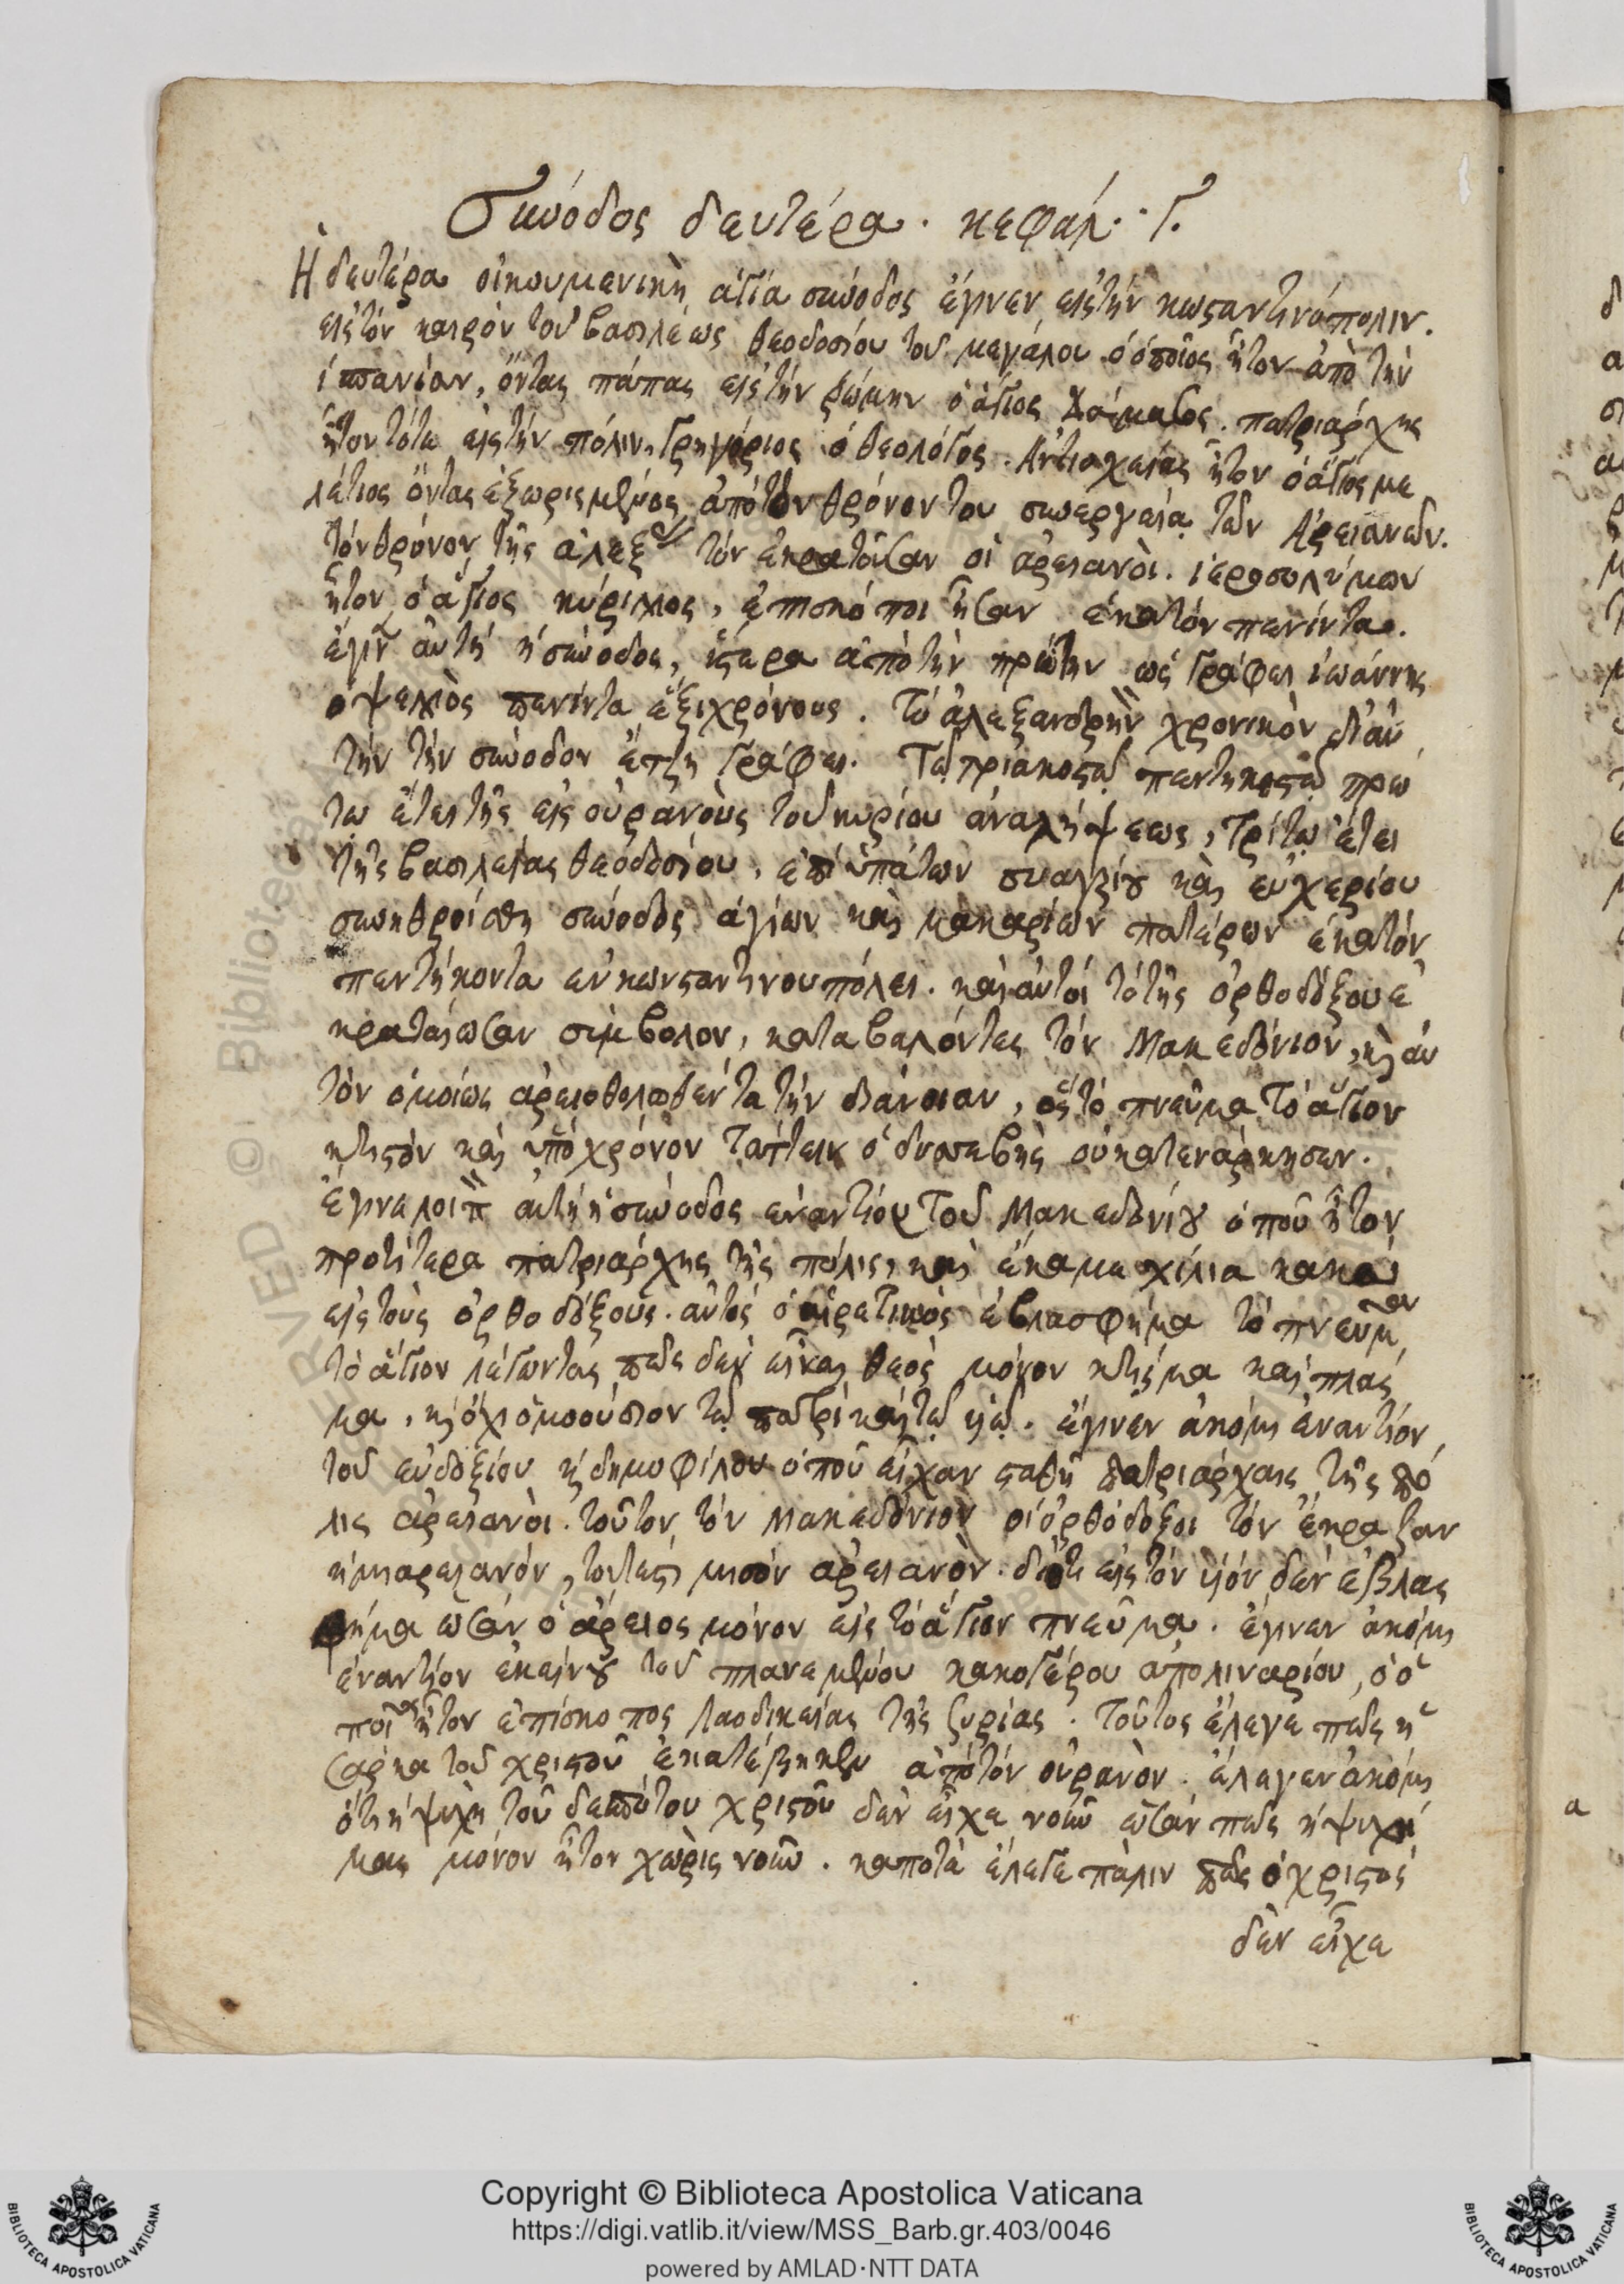 Σύνοδος δευτέρα. κεφάλ. Γ.
Ἡ δευτέρα οἰκουμενικὴ ἁγία σύνοδος ἔγινεν εἰς τὴν κωςαντινόπολιν.
εἰς τὸν καιρὸν τοῦ βασιλέως θεοδοσίου τοῦ μεγάλου ὁ ὁποῖος ἦτον ἀπὸ τὴν
ἱσπανίαν, ὄντας πάπας εἰς τὴν ῥώμην ὁ ἅγιος Δάμασος. πατριάρχης
ἦτον τότε εἰς τὴν πόλιν, Γρηγόριος ὁ θεολόγος. Ἀντιοχείας ἦτον ὁ ἅγιος με
λέτιος ὄντας ἐξωρισμένος ἀπὸ τὸν θρόνον του συνεργείᾳ τῶν Ἀρειανῶν.
τὸν θρόνον τῆς ἀλεξ τὸν ἐκρατοῦσαν οἱ ἀρειανοὶ. ἱεροσολύμων
ἦτον ὁ ἅγιος κύριλλος, ἐπισκόποι ἦσαν ἑκατὸν πενίντα.
ἐγιν αὐτὴ ἡ σύνοδος, ὕςερα ἀπὸ τὴν πρώτην ὡς γράφει ἰωάννης
ὁ ψελλὸς πενίντα ἕξι χρόνους. Τὸ ἀλεξανδρινὸν χρονικὸν δι᾽ αὐ
τὴν τὴν σύνοδον ἔτζη γράφει. Τῷ τριακοςῷ πεντηκοςῷ πρώ
τῳ ἔτει τῆς εἰς οὐρανοὺς τοῦ κυρίου ἀναλήψεως, τρίτῳ ἔτει
τῆς βασιλείας θεοδοσίου, ἐπὶ ὑπάτων συαγρίου καὶ εὐχερίου
συνηθροίσθη σύνοδος ἁγίων καὶ μακαρίων πατέρων ἑκατὸν
πεντήκοντα ἐν κωνςαντινουπόλει. καὶ αὐτοὶ τὸ τῆς ὀρθοδόξου ἐ
κραταίωσαν σύμβολον, καταβαλόντες τὸν Μακεδόνιον, κ αὐ
τὸν ὁμοίως ἀρειοθολωθέντα τὴν διάνοιαν, ὃς τὸ πνεῦμα τὸ ἅγιον
κτιςὸν καὶ ὑπὸ χρόνον τάττειν ὁ δυσσεβὴς οὐ κατενάρκησεν.
ἔγινε λοιπ αὐτὴ ἡ σύνοδος ἐναντίον τοῦ Μακεδονίου ὁποῦ ἦτον
προτίτερα πατριάρχης τῆς πόλις, καὶ ἔκαμε χίλια κακὰ
εἰς τοὺς ὀρθοδόξους. αὐτὸς ὁ αἱρετικὸς ἐβλασφήμα τὸ πνεῦμα
τὸ ἅγιον λέγωντας πῶς δὲν εἶναι θεὸς μόνον κτίςμα καὶ πλάς
μα, κ ὄχι ὁμοούσιον τῷ πατρὶ καὶ τῷ υἱῷ. ἔγινεν ἀκόμι ἐναντίον
τοῦ εὐδοξίου κ δημοφίλου ὁποῦ εἶχαν ςαθῆ πατριάρχαις τῆς πό
λις ἀρειανοὶ. τοῦτον τὸν Μακεδόνιον οἱ ὀρθόδοξοι τὸν ἔκραζαν
ἡμιαρειανόν, τουτές μισὸν ἀρειανὸν. διότι εἰς τὸν υἱὸν δὲν ἐβλας
φήμα ὡσὰν ὁ ἄρειος μόνον εἰς τὸ ἅγιον πνεῦμα. ἔγινεν ἀκόμι
ἐναντίον ἐκείνου τοῦ πλανεμένου κακογέρου ἀπολιναρίου, ὁ ὁ
ποῖος ἦτον ἐπίσκοπος λαοδικείας τῆς ζυρίας. τοῦτος ἔλεγε πῶς ἡ
σάρκα τοῦ χριςοῦ ἐκατέβηκεν ἀπὸ τὸν οὐρανὸν. ἔλεγεν ἀκόμι
ὅτι ἡ ψυχὴ τοῦ δεσπότου χριςοῦ δὲν εἶχε νοῦν ὡσὰν πῶς ἡ ψυχή
μας μόνον ἦτον χωρὶς νοῦν. κάποτε ἔλεγε πάλιν πῶς ὁ χριςὸς
δὲν εἶχε
Copyright © Biblioteca Apostolica Vaticana
https://digi.vatlib.it/view/MSS_Barb.gr.403/0046
powered by AMLAD·NTT DATA
BIBLIOTECA APOSTOLICA VATICANA
BIBLIOTECA APOSTOLICA VATICANA